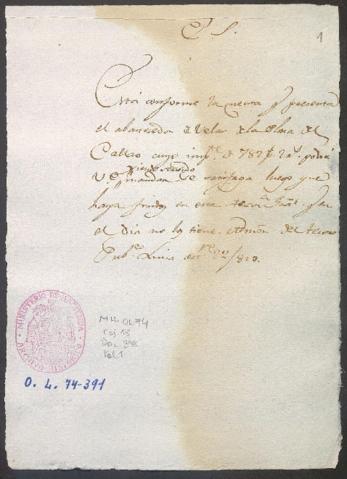 E. S.
1
Está conforme la cuenta q.e presenta
el abastecedor de velas de la Plaza del
Callao cuyo imp.te de 787 p.s 2 r.s podrá
V.E. siendo servido
mandar se satisfaga luego que
haya fondos en esta Tesor.a Gral. p.s en
el dia no los tiene. Admon. del Tesoro
Pub.co Lima
MINISTERIO DE HACIENDA
ARCHIVO
O. L. 74-391